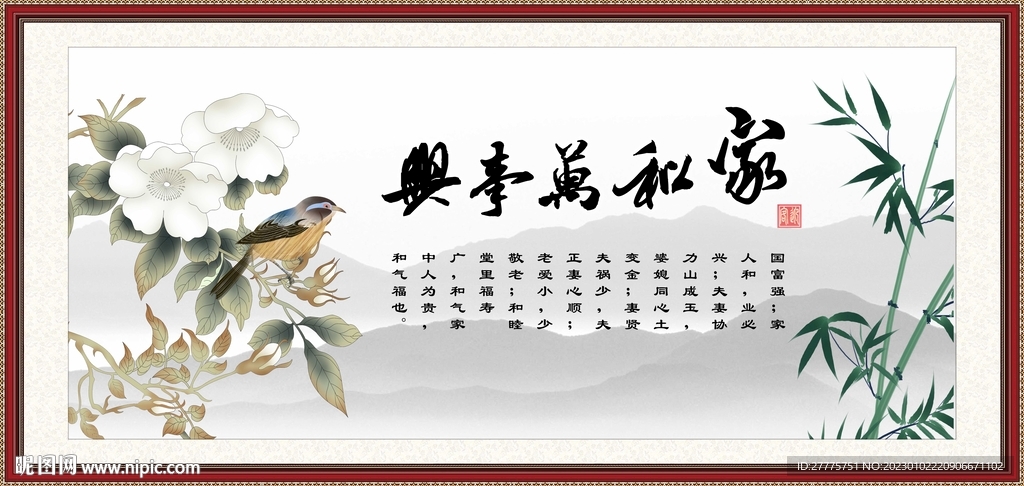 家和萬事興
国富强；家
人和，业必
兴；夫妻协
力山成玉，
婆媳同心土
变金；妻贤
夫祸少，夫
正妻心顺；
老爱小，少
敬老；和睦
堂里福寿
广，和气家
中人为贵，
和气福也。
昵图网 www.nipic.com
ID:27775751 NO:20230102220906671102